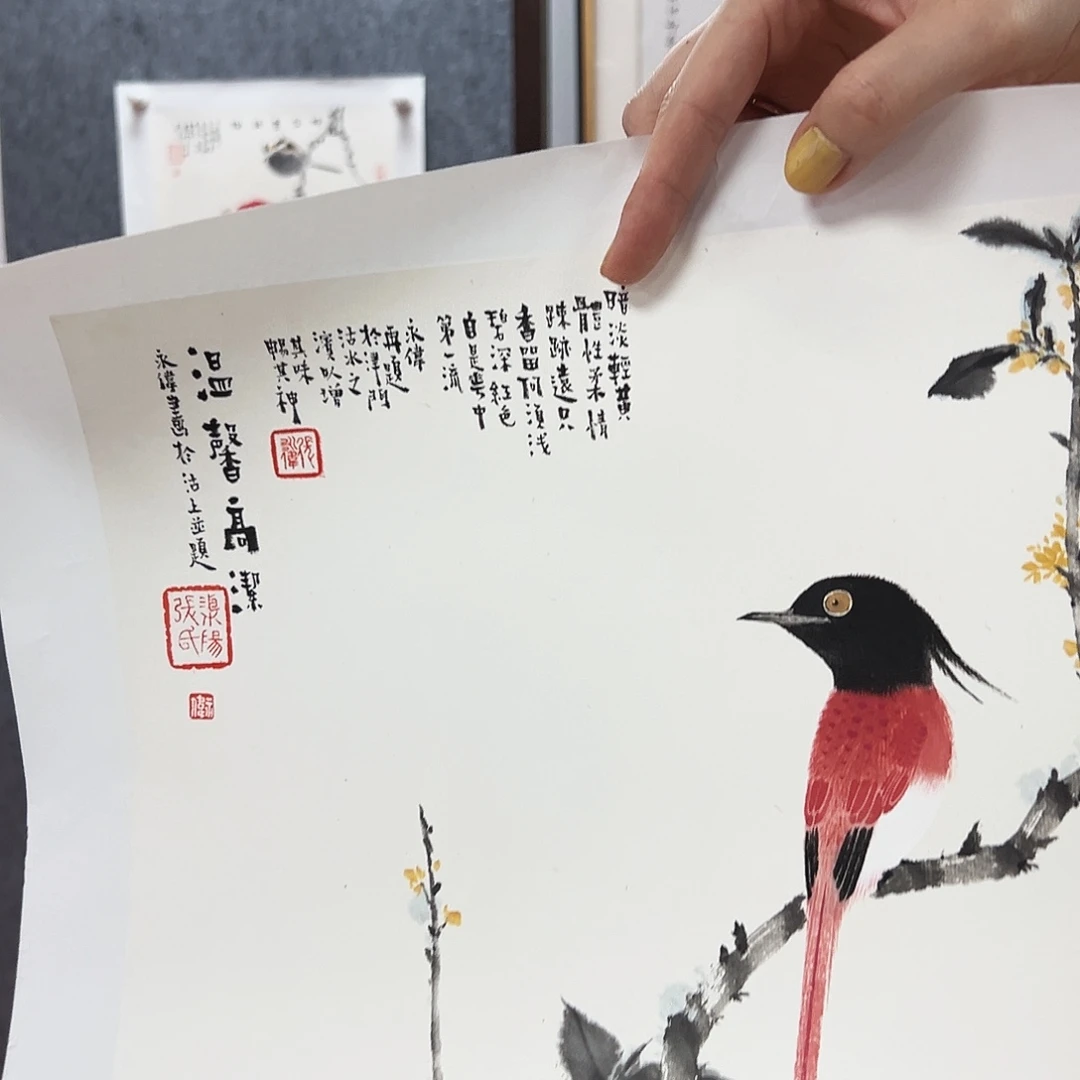 暗淡輕黃
體性柔情
踈跡遠只
香留何須浅
碧深紅色
自是雲中
第一流
永偉
再題
於津門
沽水之
濱以增
其味
暢其神
張永偉
溫馨高潔
永偉畫於沽上並題
張氏
永偉